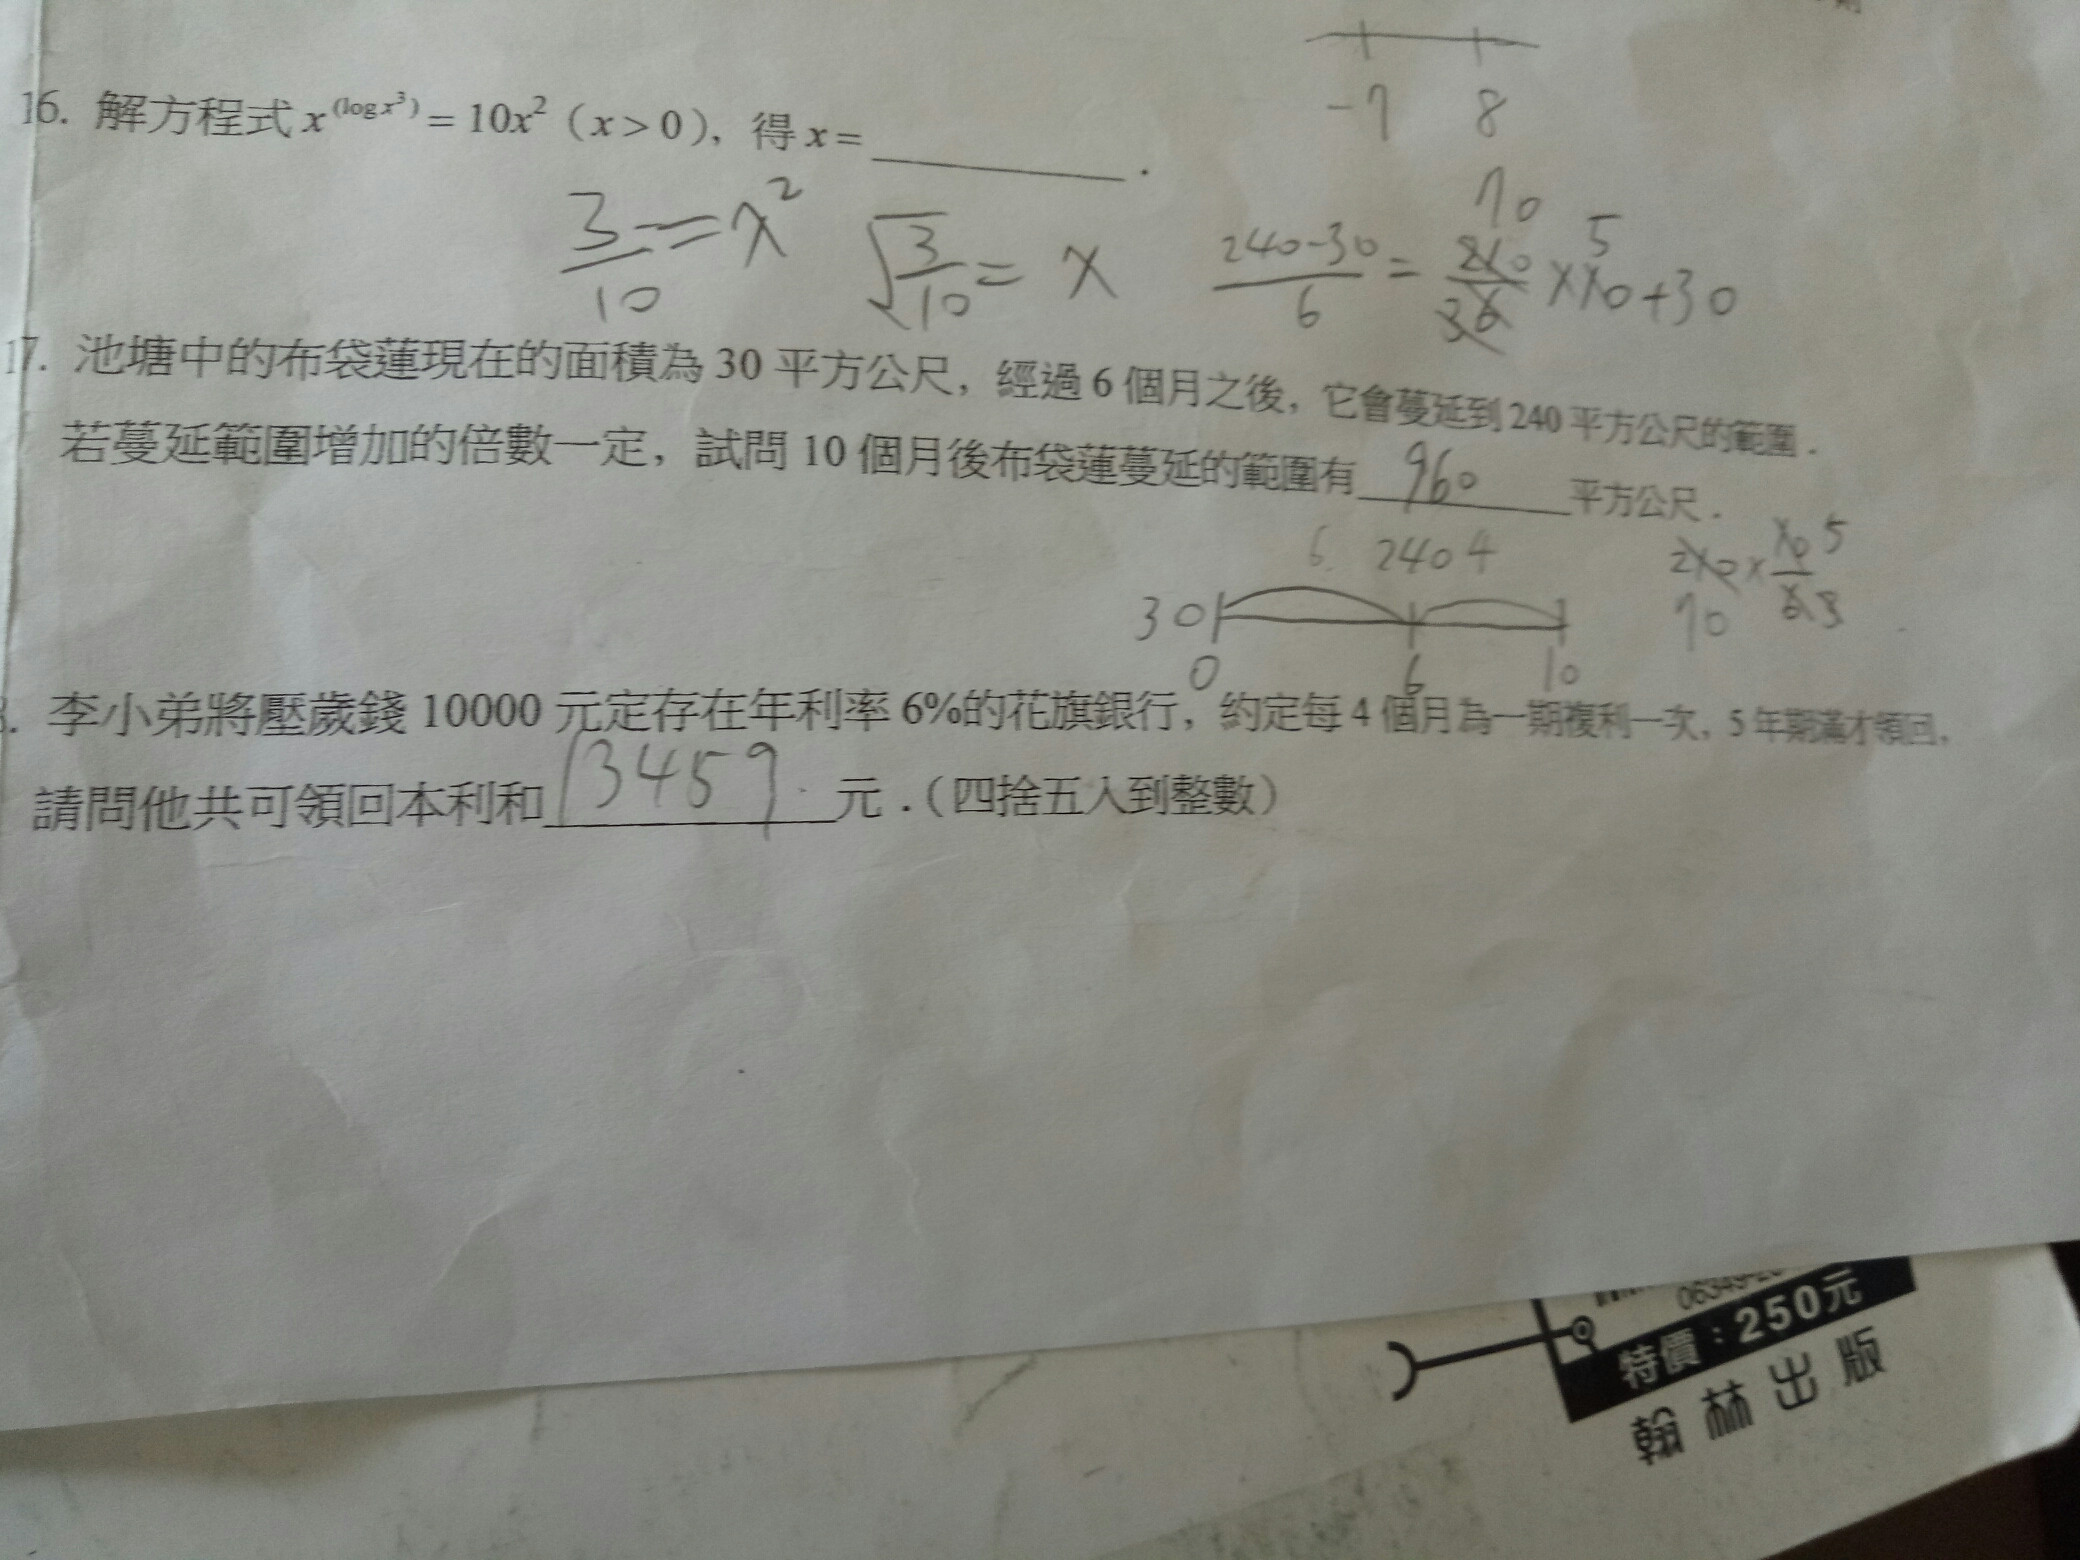 -7 8
16. 解方程式 x^(log x³) = 10x² (x>0), 得 x= ______ .
3/10 = x² √(3/10) = x
70 5
(240-30)/6 = 210/36 × 10 + 30
17. 池塘中的布袋蓮現在的面積為 30 平方公尺, 經過 6 個月之後, 它會蔓延到 240 平方公尺的範圍.
若蔓延範圍增加的倍數一定, 試問 10 個月後布袋蓮蔓延的範圍有 960 平方公尺.
6. 240 4
30
0 6 10
210 × 10/6 5
70 3
. 李小弟將壓歲錢 10000 元定存在年利率 6%的花旗銀行, 約定每 4 個月為一期複利一次, 5 年期滿才領回,
請問他共可領回本利和 13459. 元.(四捨五入到整數)
特價:250元
翰林出版